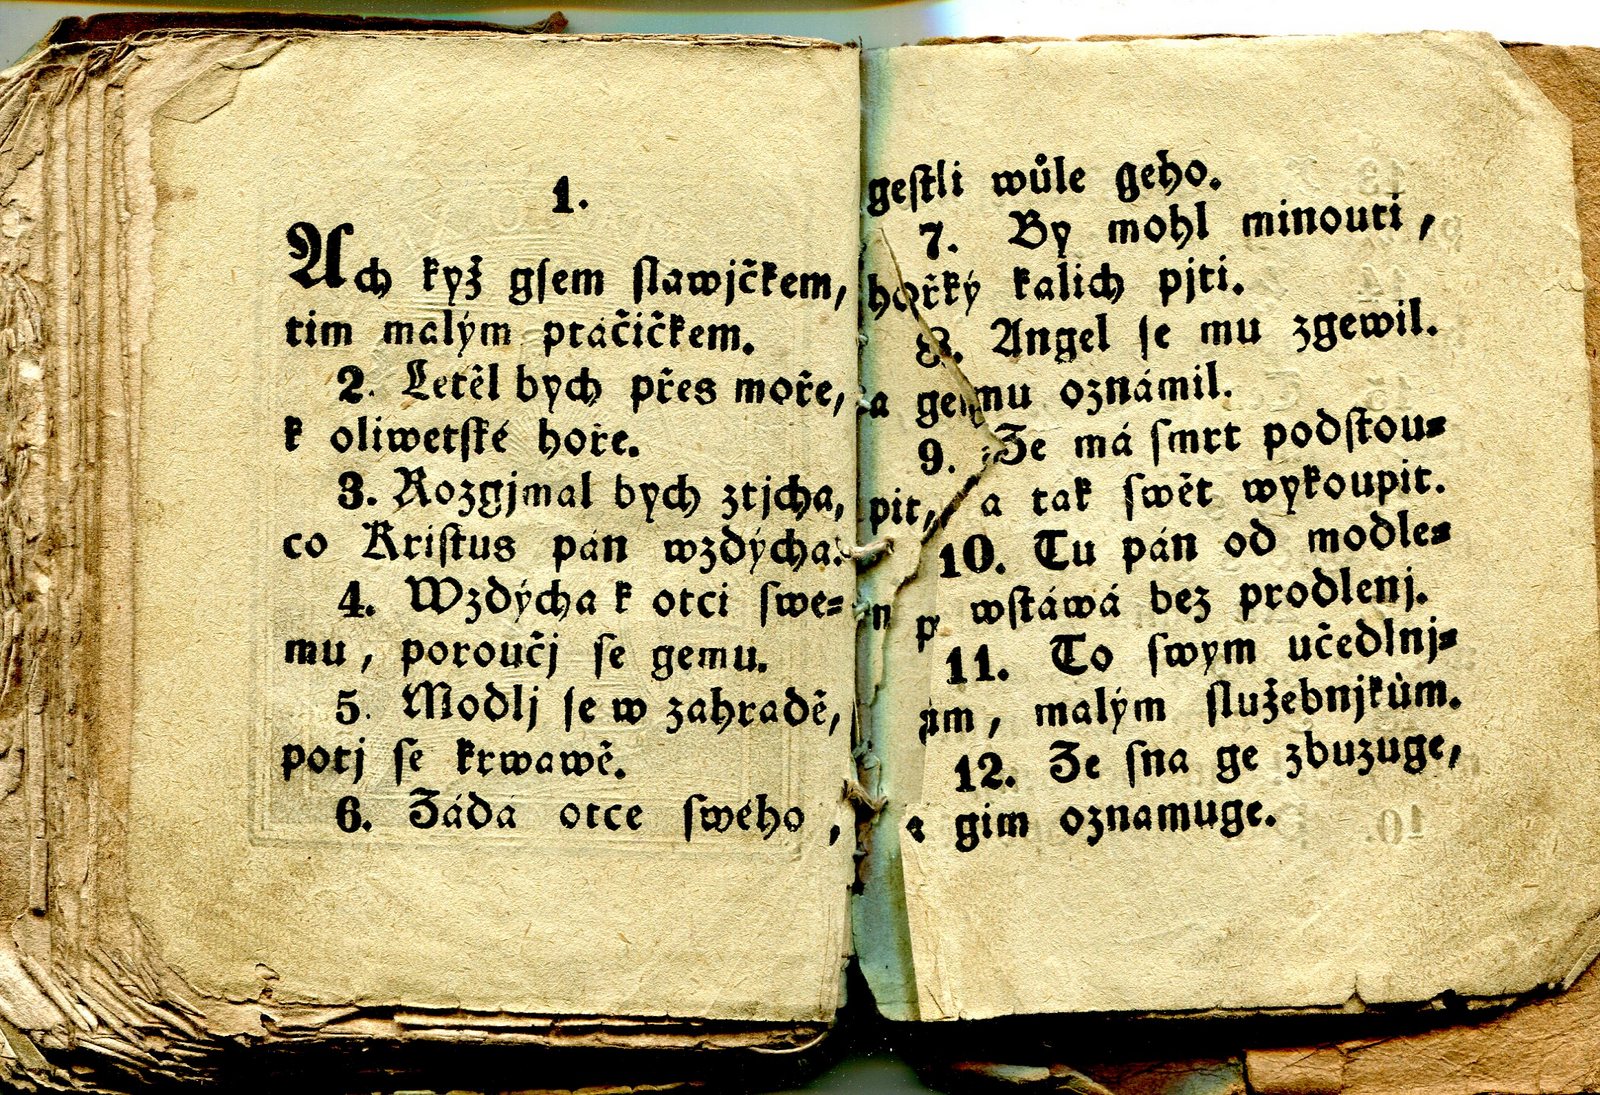 1.
Ach kyž gſem ſlawjčkem,
tim malým ptáčičkem.
2. Letěl bych přes moře,
k oliwetſké hoře.
3. Rozgjmal bych ztjcha,
co Kriſtus pán wzdýcha.
4. Wzdýcha k otci ſwe=
mu, poroučj ſe gemu.
5. Modlj ſe w zahradě,
potj ſe krwawě.
6. Žádá otce ſwého,
geſtli wůle geho.
7. By mohl minouti,
hořký kalich pjti.
8. Angel ſe mu zgewil.
a gemu oznámil.
9. Že má ſmrt podſtou=
pit, a tak ſwět wykoupit.
10. Tu pán od modle=
n wſtáwá bez prodlenj.
11. To ſwym učedlnj=
ům, malým ſlužebnjkům.
12. Že ſna ge zbuzuge,
a gim oznamuge.